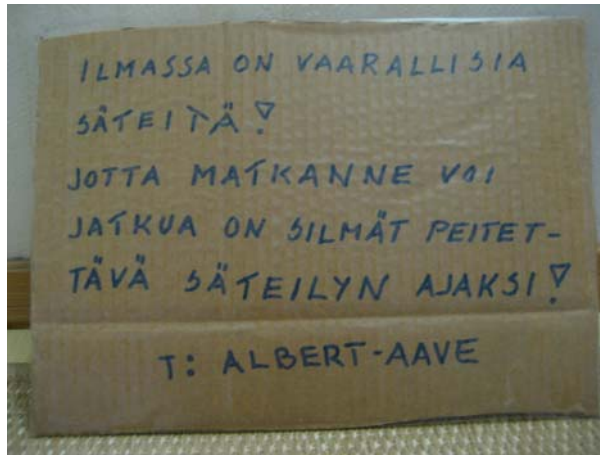 ILMASSA ON VAARALLISIA
SÄTEITÄ!
JOTTA MATKANNE VOI
JATKUA ON SILMÄT PEITET-
TÄVÄ SÄTEILYN AJAKSI!
T: ALBERT-AAVE